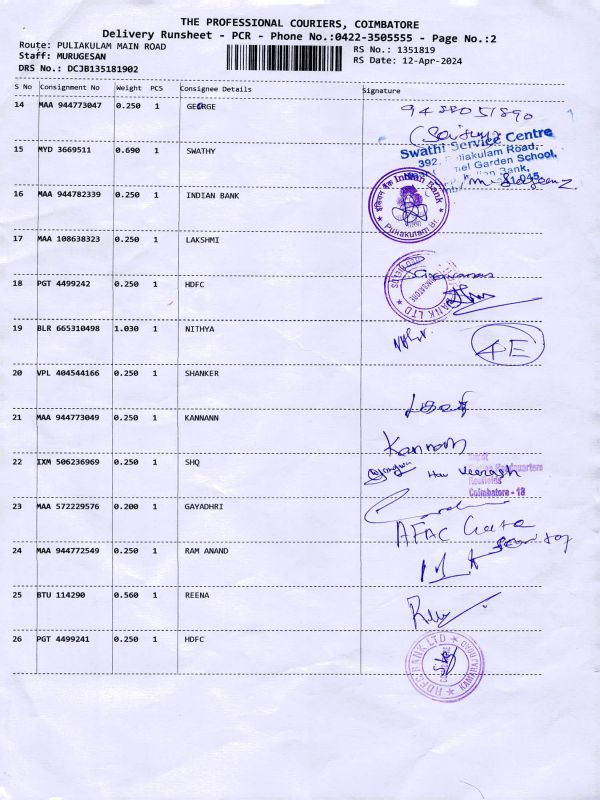 THE PROFESSIONAL COURIERS, COIMBATORE
Delivery Runsheet - PCR - Phone No.:0422-3505555 - Page No.:2
Route: PULIAKULAM MAIN ROAD
RS No.: 1351819
Staff: MURUGESAN
RS Date: 12-Apr-2024
DRS No.: DCJB135181902
S No Consignment No Weight PCS Consignee Details Signature
14 MAA 944773047 0.250 1 GEORGE
9488051890
15 MYD 3669511 0.690 1 SWATHY
Swathi Service Centre
392, Puliakulam Road,
Garden School,
Bank,
16 MAA 944782339 0.250 1 INDIAN BANK
Indian Bank
Puliakulam Br.
17 MAA 108638323 0.250 1 LAKSHMI
18 PGT 4499242 0.250 1 HDFC
BANK LTD
COIMBATORE
19 BLR 665310498 1.030 1 NITHYA
4E
20 VPL 404544166 0.250 1 SHANKER
21 MAA 944773049 0.250 1 KANNANN
Kannan
22 IXM 506236969 0.250 1 SHQ
Hav Veeresh
Headquarters
Coimbatore - 18
23 MAA 572229576 0.200 1 GAYADHRI
AFAC Gate
24 MAA 944772549 0.250 1 RAM ANAND
25 BTU 114290 0.560 1 REENA
26 PGT 4499241 0.250 1 HDFC
HDFC BANK LTD